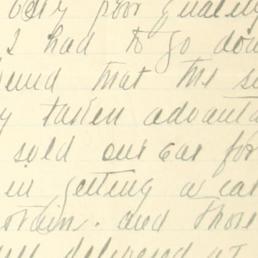 very poor quality
I had to go dow
found that the s
y taken advanta
sold our car for
in getting a ca
ortain. and those
delivered at